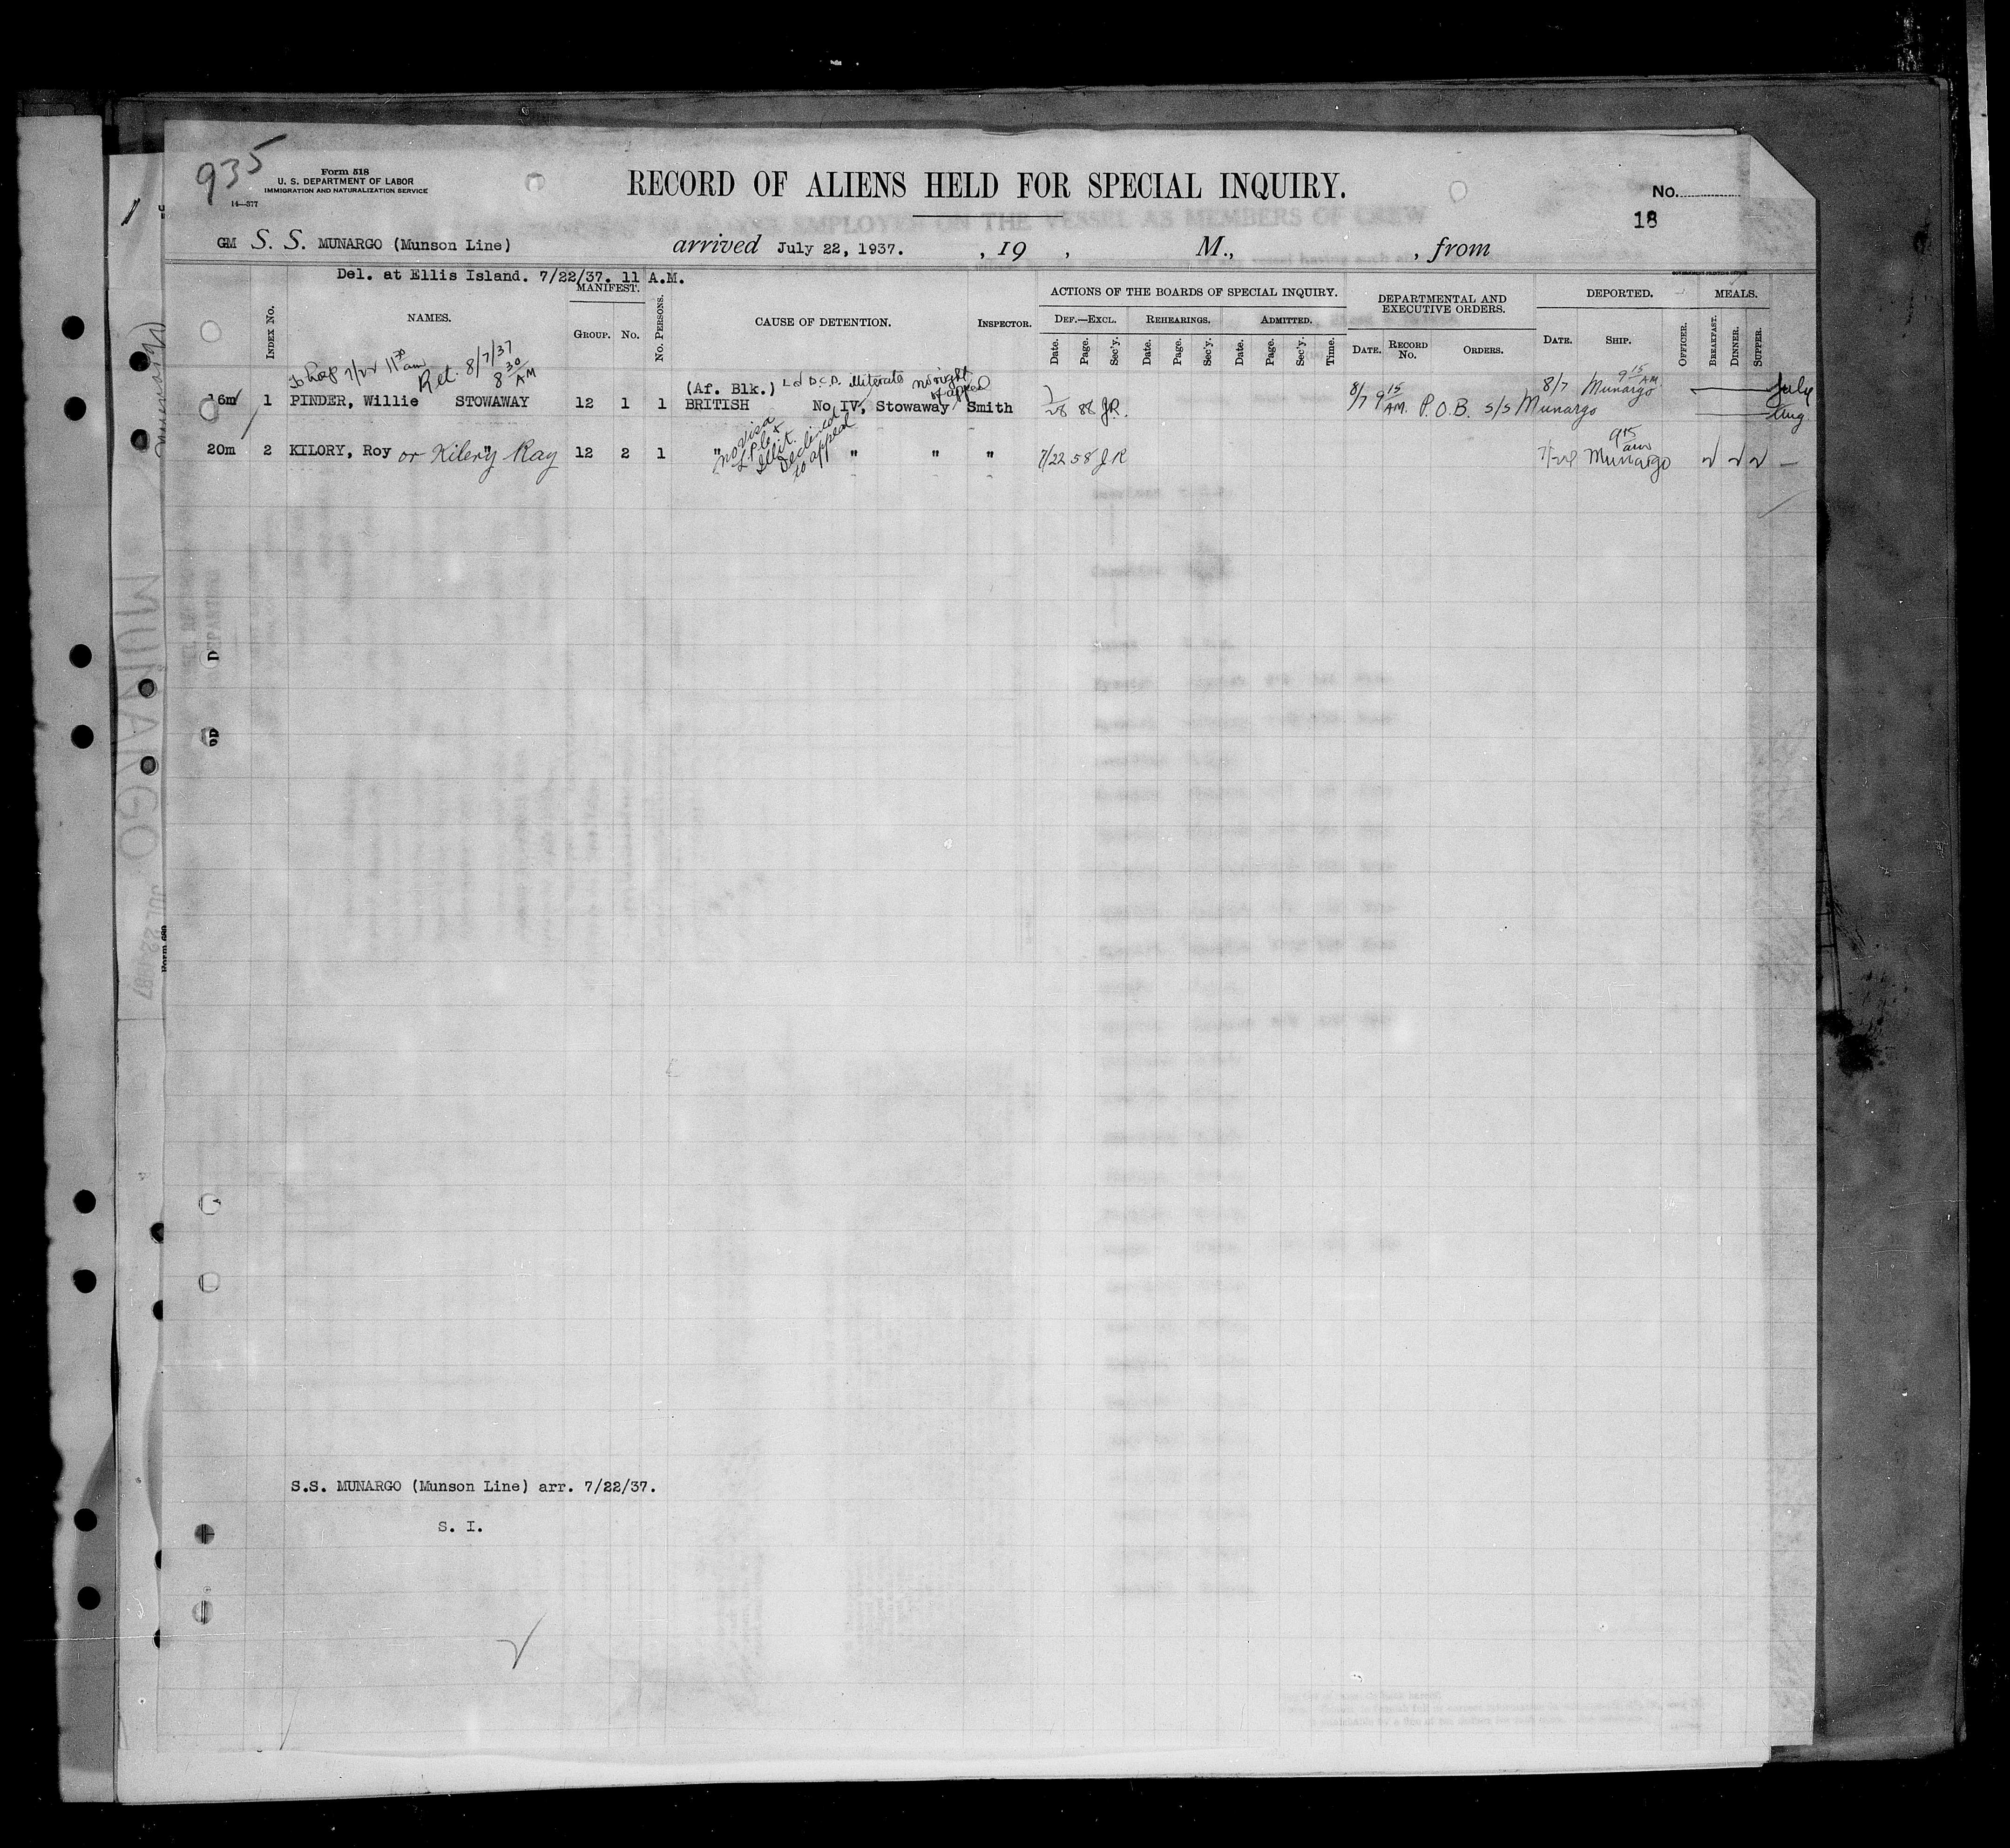 935
Form 518
U. S. DEPARTMENT OF LABOR
IMMIGRATION AND NATURALIZATION SERVICE
14—377
RECORD OF ALIENS HELD FOR SPECIAL INQUIRY.
No.
18
GM S. S. MUNARGO (Munson Line) arrived July 22, 1937. , 19 , M., , from
Del. at Ellis Island. 7/22/37. 11 A.M.
INDEX No.
NAMES.
MANIFEST.
GROUP. No.
No. PERSONS.
CAUSE OF DETENTION.
INSPECTOR.
ACTIONS OF THE BOARDS OF SPECIAL INQUIRY.
DEF.—EXCL. REHEARINGS. ADMITTED.
Date. Page. Sec'y. Date. Page. Sec'y. Date. Page. Sec'y. Time.
DEPARTMENTAL AND EXECUTIVE ORDERS.
DATE. RECORD No. ORDERS.
DEPORTED.
DATE. SHIP. OFFICER.
MEALS.
BREAKFAST. DINNER. SUPPER.
to Hosp 7/22 11 30 am Ret. 8/7/37 8 30 AM
(Af. Blk.) illiterate no right of appeal
16m 1 PINDER, Willie STOWAWAY 12 1 1 BRITISH No IV, Stowaway Smith 7/28 88 JR. 8/7 9 15 AM. P.O.B. S/S Munargo 8/7 Munargo 9 15 AM July
Aug
20m 2 KILORY, Roy or Kilery Ray " 12 2 1 " " " " 7/22 58 JR Munargo 9 15 am
no visa
L.P.C. &
Illit.
Declined
to appeal
MUNARGO
JUL 22 1937
Form 680
S.S. MUNARGO (Munson Line) arr. 7/22/37.
S. I.